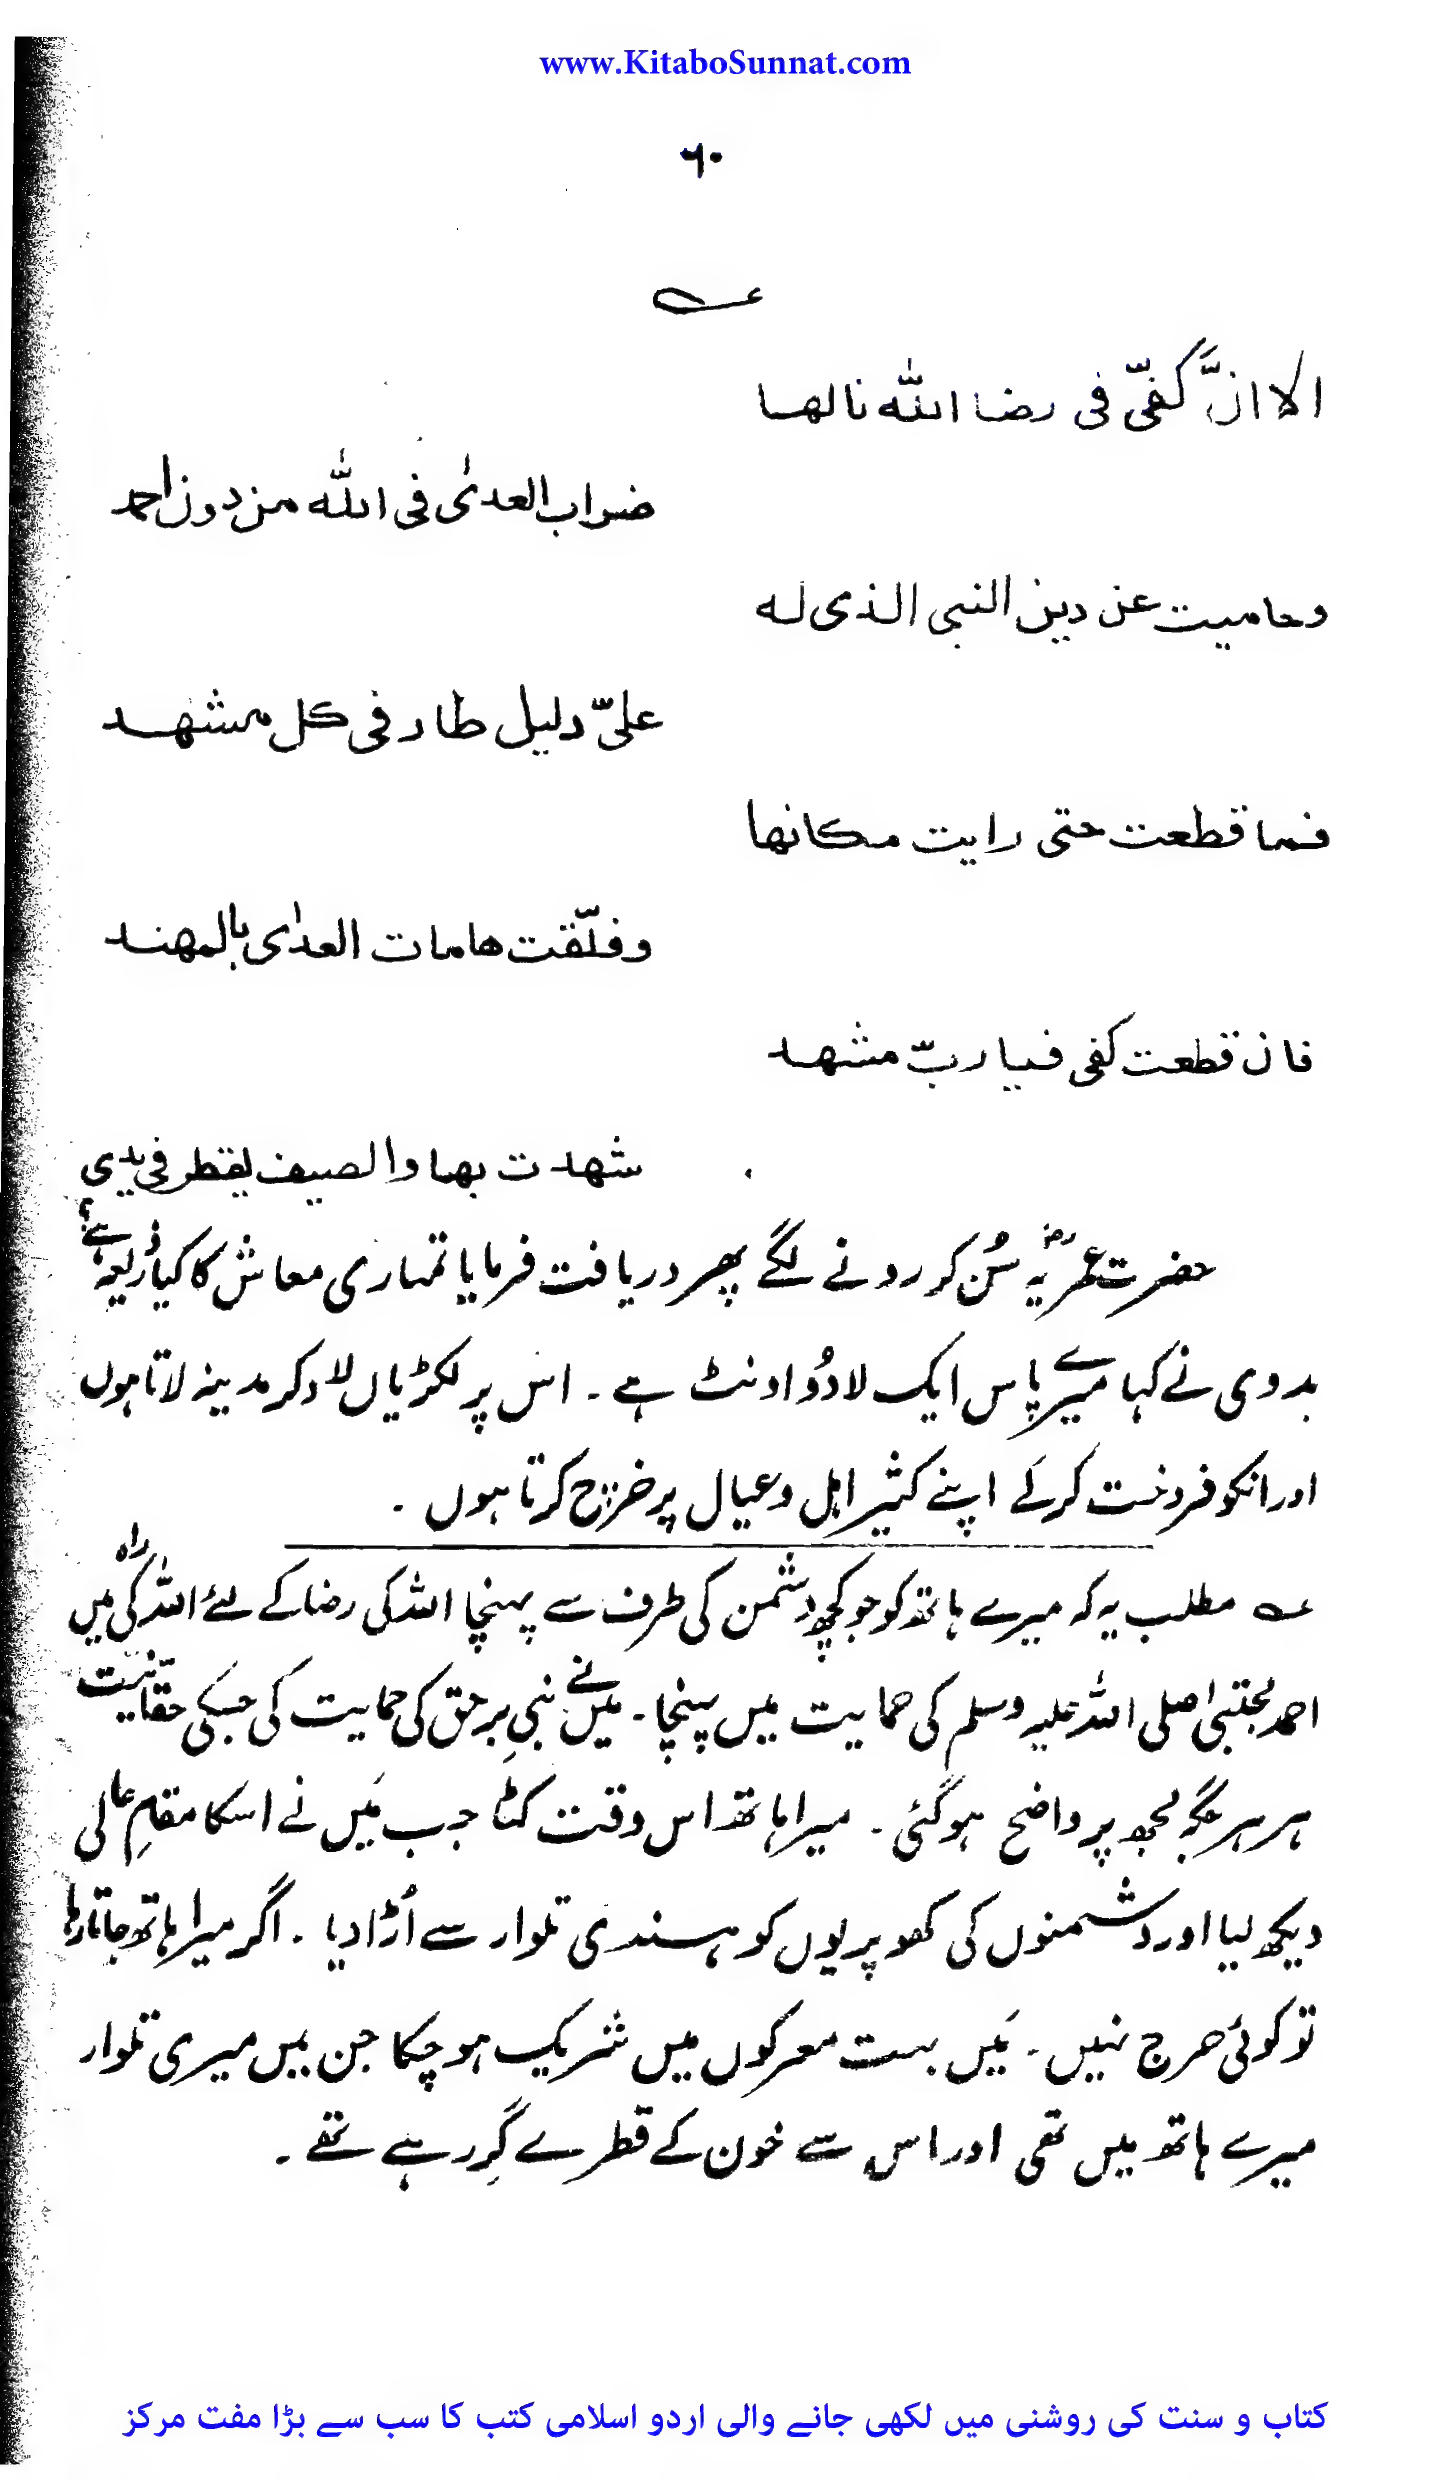 www.KitaboSunnat.com
٦٠
؎
الا انَّ کفیّ فی رضا اللّٰہ نالھا
ضراب العدیٰ فی اللّٰہ من دون احمد
وحامیت عن دین النبی الذی لہ
علیّ دلیل طار فی کل مشھد
فما قطعت حتی رایت مکانھا
وفلّقت ھامات العدٰی بالمھند
فان قطعت کفی فیا ربّ مشھد
شھدت بھا والصیف یقطر فی یدی
حضرت عمرؓ یہ سُن کر رونے لگے پھر دریافت فرمایا تمہاری معاش کا کیا ذریعہ ہے؟
بدوی نے کہا میرے پاس ایک لادُو اونٹ ہے ۔ اس پر لکڑیاں لاد کر مدینہ لاتا ہوں
اور انکو فروخت کر کے اپنے کثیر اہل و عیال پر خرچ کرتا ہوں ۔
؎ مطلب یہ کہ میرے ہاتھ کو جو کچھ دشمن کی طرف سے پہنچا اللہ کی رضا کے لئے اللہ کی راہ میں
احمد مجتبیٰ صلی اللہ علیہ وسلم کی حمایت میں پہنچا ۔ میں نے نبیِ برحق کی حمایت کی جسکی حقّانیت
ہر ہر جگہ مجھ پر واضح ہو گئی ۔ میرا ہاتھ اس وقت کٹا جب مَیں نے اسکا مقامِ عالی
دیکھ لیا اور دشمنوں کی کھوپریوں کو ہندی تلوار سے اُڑا دیا ۔ اگر میرا ہاتھ جاتا رہا
تو کوئی حرج نہیں ۔ مَیں بہت معرکوں میں شریک ہو چکا جن میں میری تلوار
میرے ہاتھ میں تھی اور اس سے خون کے قطرے گِر رہے تھے ۔
کتاب و سنت کی روشنی میں لکھی جانے والی اردو اسلامی کتب کا سب سے بڑا مفت مرکز